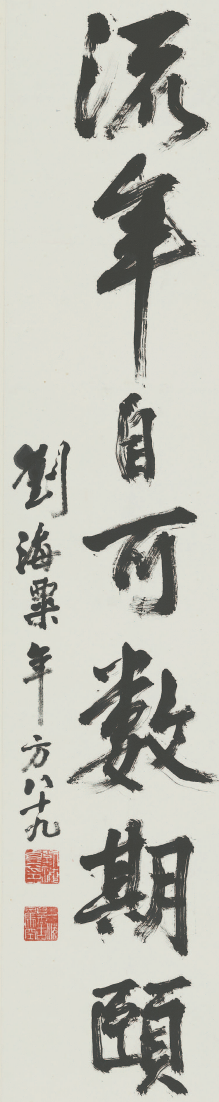 流年自可數期頤
劉海粟年方八十九